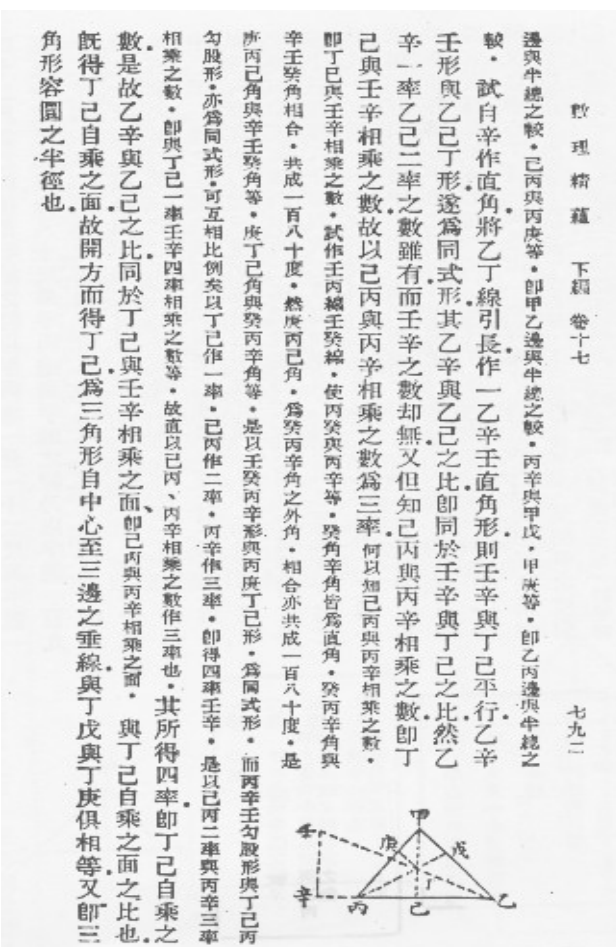 數理精蘊 下編 卷十七
七九二
邊與半總之較·己丙與丙庚等·卽甲乙邊與半總之較·丙辛與甲戊·甲庚等·卽乙丙邊與半總之
較·試自辛作直角將乙丁線引長作一乙辛壬直角形則壬辛與丁己平行乙辛
壬形與乙己丁形遂爲同式形其乙辛與乙己之比卽同於壬辛與丁己之比然乙
辛一率乙己二率之數雖有而壬辛之數却無又但知己丙與丙辛相乘之數卽丁
己與壬辛相乘之數故以己丙與丙辛相乘之數爲三率何以知己丙與丙辛相乘之數·
卽丁巳與壬辛相乘之數·試作壬丙線壬癸線·使丙癸與丙辛等·癸角辛角皆爲直角·癸丙辛角與
辛壬癸角相合·共成一百八十度·然庚丙己角·爲癸丙辛角之外角·相合亦共成一百八十度·是
庚丙己角與辛壬癸角等·庚丁己角與癸丙辛角等·是以壬癸丙辛形與丙庚丁己形·爲同式形·而丙辛壬勾股形與丁己丙
勾股形·亦爲同式形·可互相比例矣以丁己作一率·己丙作二率·丙辛作三率·卽得四率壬辛·是以己丙二率與丙辛三率
相乘之數·卽與丁己一率壬辛四率相乘之數等·故直以己丙、丙辛相乘之數作三率也·其所得四率卽丁己自乘之
數是故乙辛與乙己之比同於丁己與壬辛相乘之面、卽己丙與丙辛相乘之面·與丁己自乘之面之比也
旣得丁己自乘之面故開方而得丁己爲三角形自中心至三邊之垂線與丁戊與丁庚俱相等又卽三
角形容圓之半徑也
甲
庚
戊
壬
丁
辛
丙
己
乙